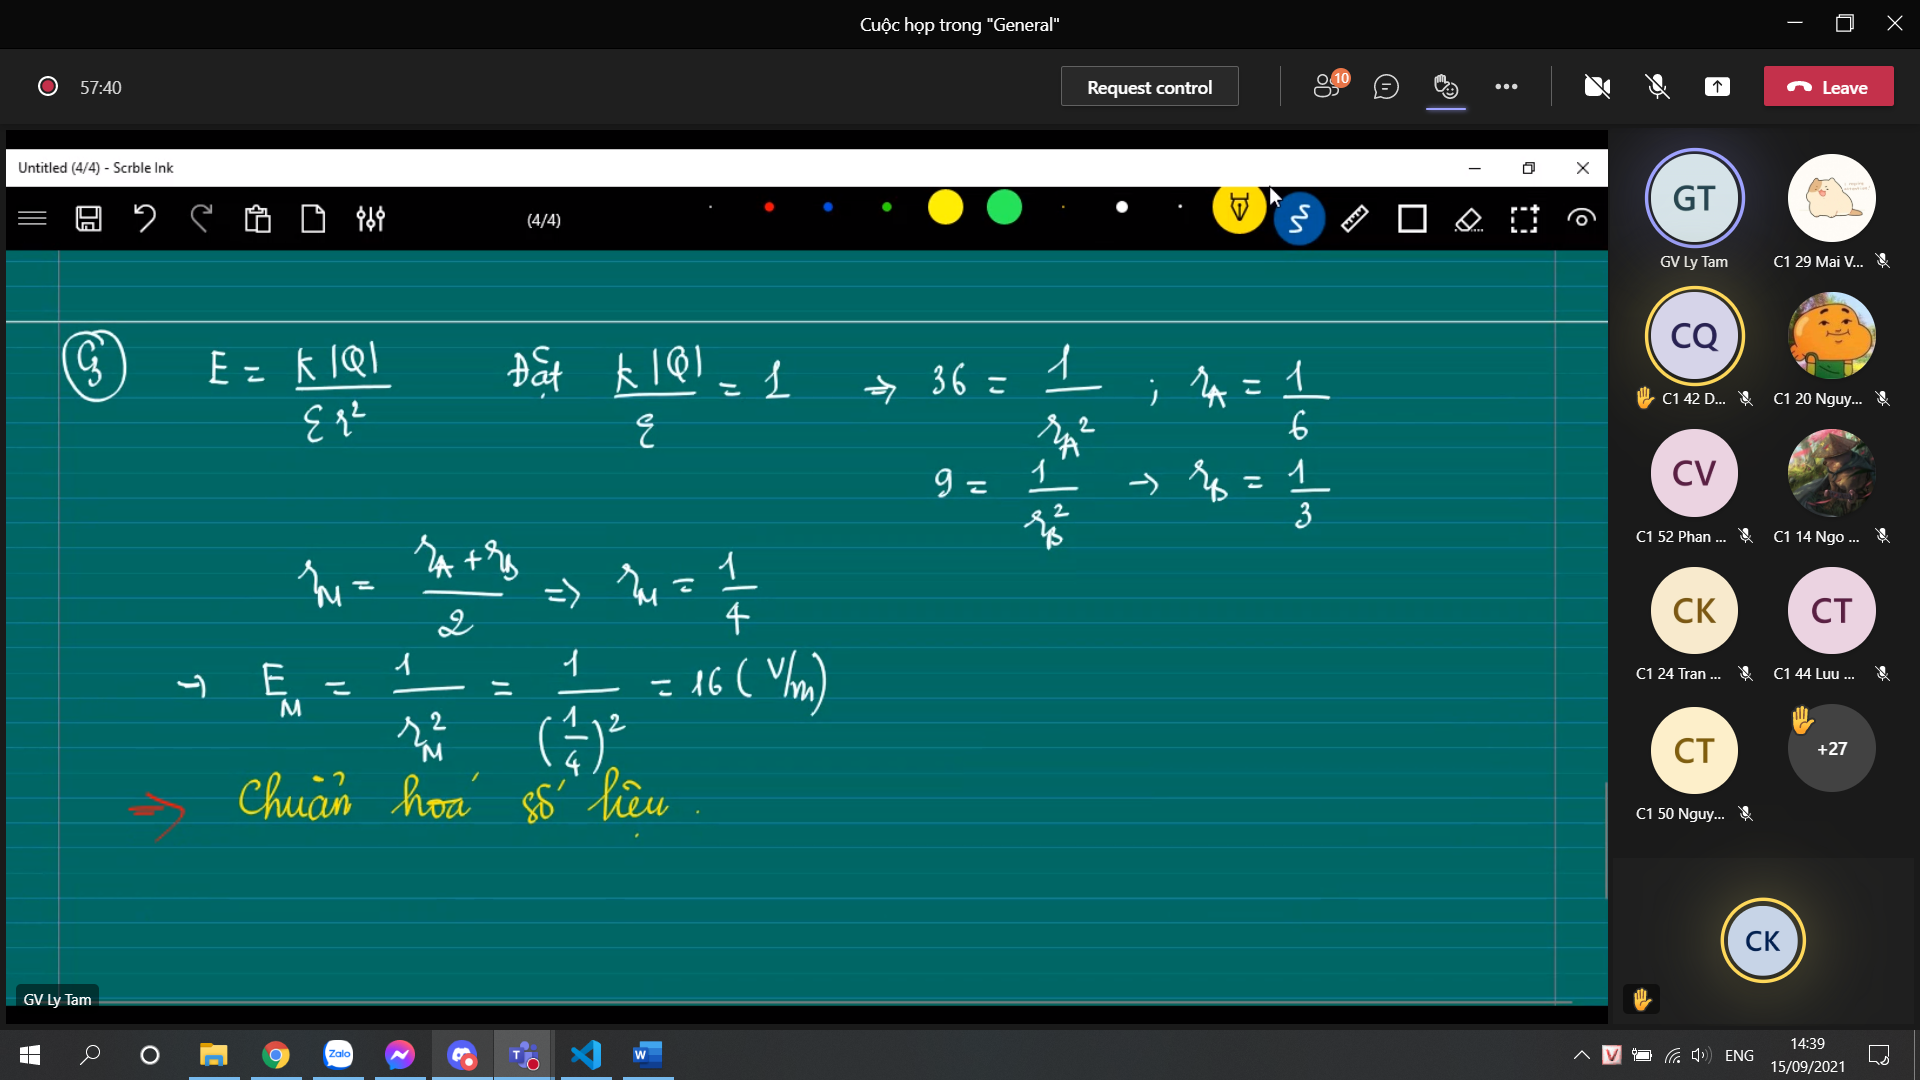 Cuộc họp trong "General"
57:40
Request control
10
Leave
Untitled (4/4) - Scrble Ink
(4/4)
③ E = k|Q| / εr² Đặt k|Q| / ε = 1 ⇒ 36 = 1 / r_A² ; r_A = 1/6
9 = 1 / r_B² → r_B = 1/3
r_M = (r_A + r_B) / 2 ⇒ r_M = 1/4
→ E_M = 1 / r_M² = 1 / (1/4)² = 16 (V/m)
⇒ Chuẩn hoá số liệu.
GV Ly Tam
GT
GV Ly Tam
C1 29 Mai V...
CQ
C1 42 D...
C1 20 Nguy...
CV
C1 52 Phan ...
C1 14 Ngo ...
CK
C1 24 Tran ...
CT
C1 44 Luu ...
CT
C1 50 Nguy...
+27
CK
Zalo
ENG
14:39
15/09/2021